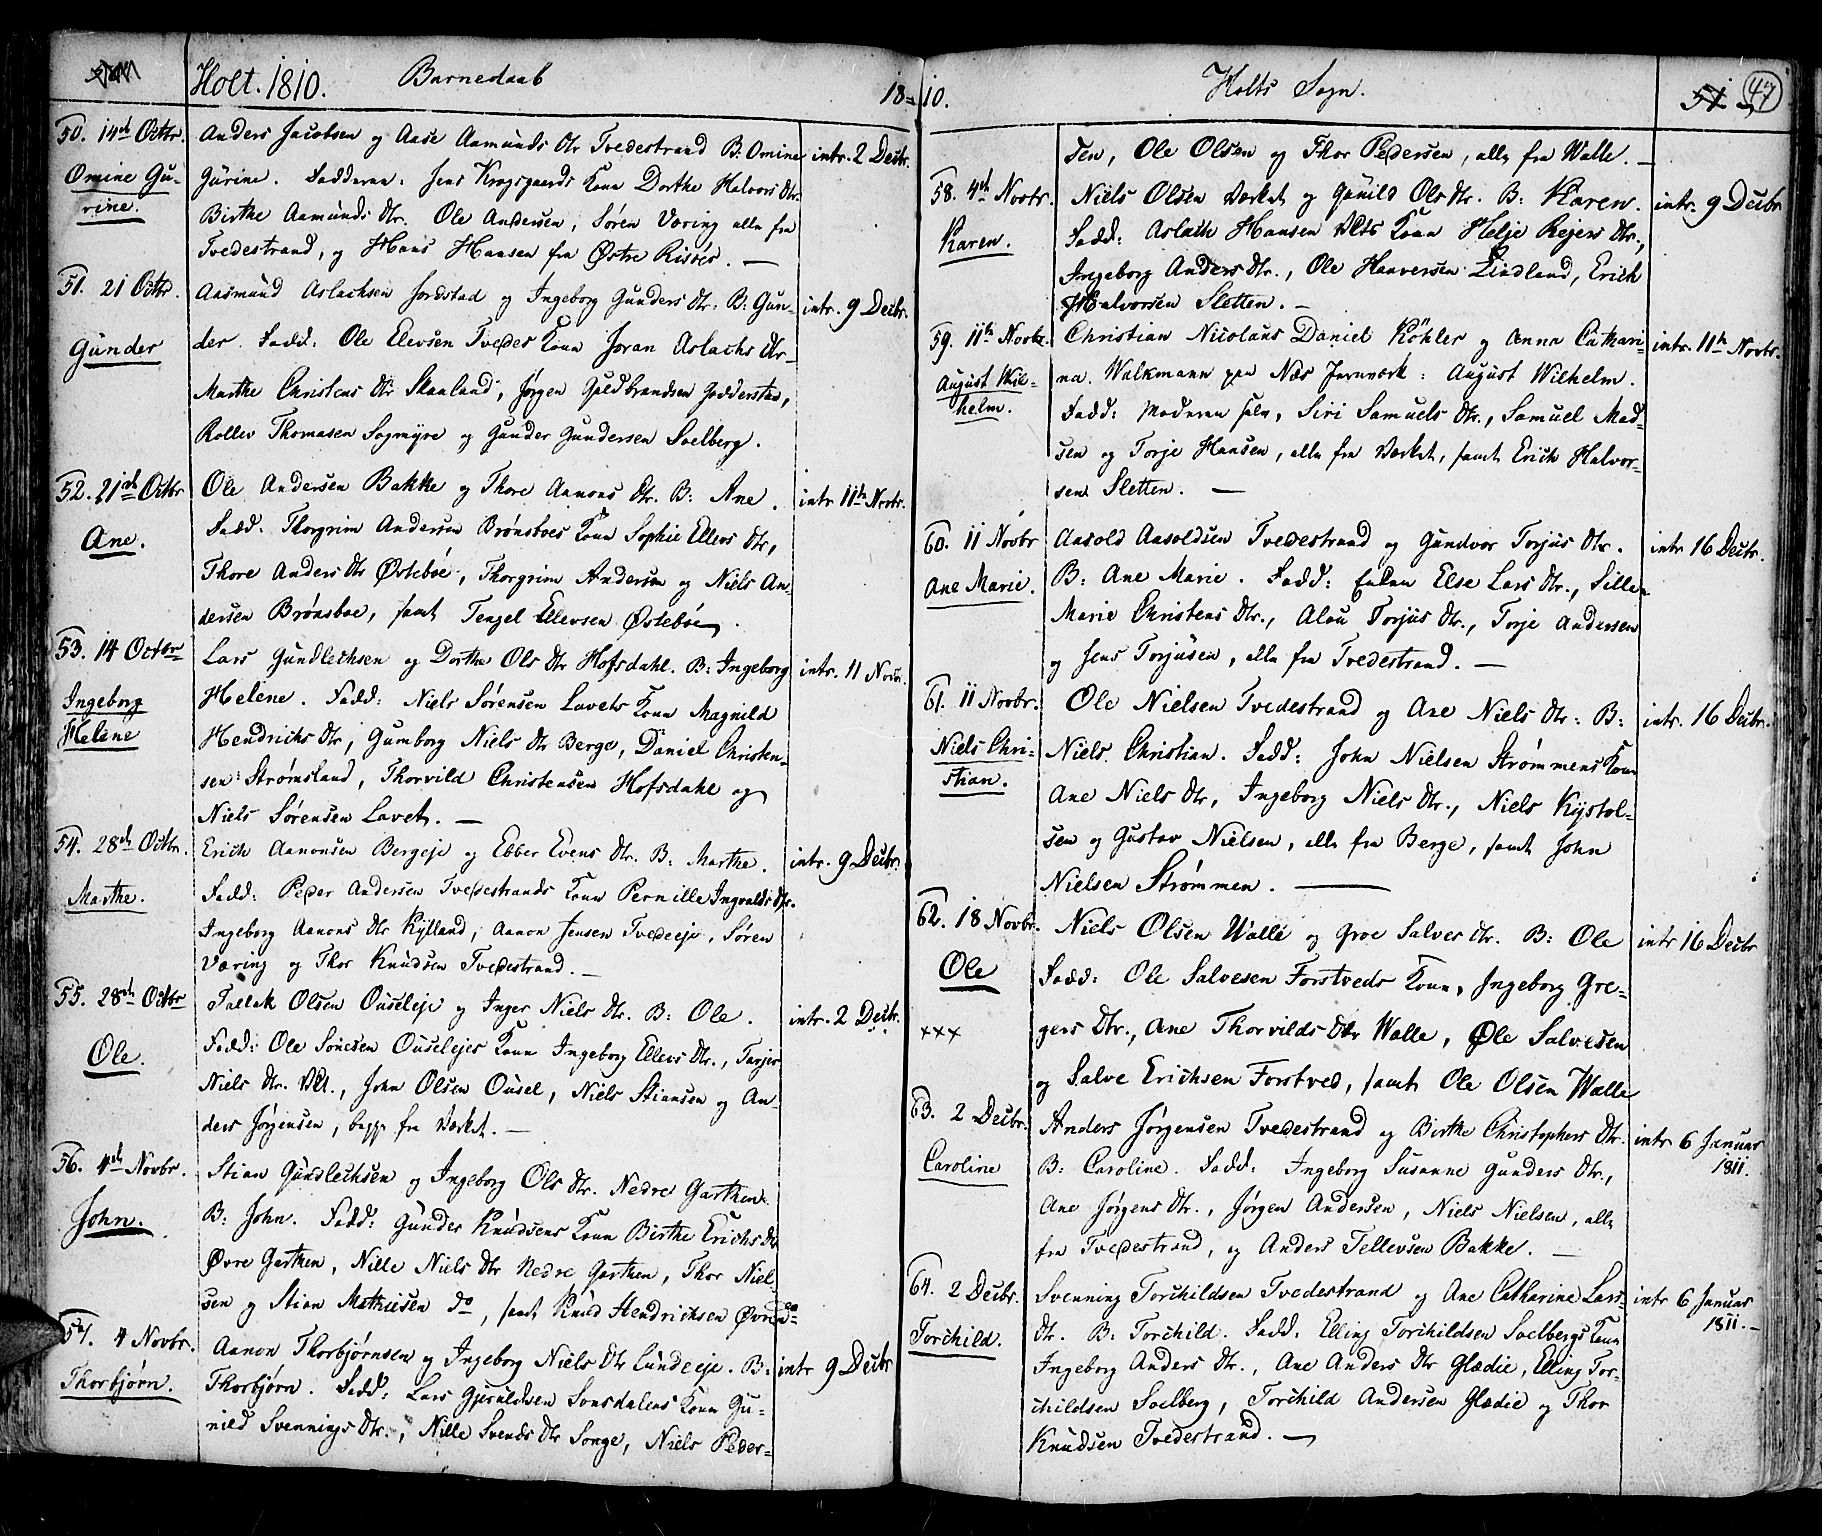 Holt. 1810. Barnedaab 18
50. 14de Octbr.
Omine Gu-
rine.
Anders Jacobsen og Aase Aamunds Dtr Tvedestrand B: Omine
Gurine. Fadderne: Jens Krogsgaards Kone Dorthe Halvors Dtr.
Birthe Aamunds Dtr. Ole Andersen, Søren Væring alle fra
Tvedestrand, og Hans Hansen fra Østre Risöer. —
intr. 2 Decbr.
51. 21 Octbr.
Gunder
Aasmund Aslachsen Jordstad og Ingeborg Gunders Dtr. B: Gun-
der. Fadd: Ole Elevsen Tvedes Kone Joran Aslachs Dtr
Marthe Christens Dtr Skaaland, Jørgen Guldbrandsen Godderstad,
Rollev Thomasen Sogmyre og Gunder Gundersen Soelberg.
intr. 9 Decbr.
52. 21de Octbr
Ane.
Ole Andersen Bakke og Thore Aanons Dtr. B: Ane.
Fadd. Thorgrim Andersen Brønsboes Kone Sophie Ellevs Dtr,
Thore Anders Dtr Østebøe, Thorgrim Andersen og Niels An-
dersen Brønsboe, samt Tengel Ellevsen Østebøe.
intr. 11te Novbr.
53. 14 Octbr
Ingeborg
Helene
Lars Gundlechsen og Dorthe Ols Dtr Hofsdahl. B: Ingeborg
Helene. Fadd: Niels Sørensen Lavets Kone Magnild
Hendrichs Dtr, Gumborg Niels Dtr Berge, Daniel Christen-
sen Strømsland, Thorvild Christensen Hofsdahl og
Niels Sørensen Lavet. —
intr. 11 Novbr.
54. 28de Octbr.
Marthe.
Erich Aanonsen Bergeje og Ebber Evens Dtr. B: Marthe.
Fadd: Peder Andersen Tvedestrands Kone Pernille Ingvalds Dtr.
Ingeborg Aanons Dtr Rylland, Aanon Jensen Tvedeeje, Søren
Væring og Thor Knudsen Tvedestrand. —
intr. 9 Decbr.
55. 28de Octbr
Ole.
Tallak Olsen Ouseleje og Inger Niels Dtr. B: Ole.
Fadd: Ole Sonesen Ouselejes Kone Ingeborg Ellevs Dtr., Torjer
Niels Dtr. Vkt., John Olsen Ousel, Niels Stiansen og An-
ders Jørgensen, begge fra Værket. —
intr. 2 Decbr.
56. 4de Novbr.
John.
Stian Gundlechsen og Ingeborg Ols Dtr. Nedre Garthen.
B: John. Fadd: Gunder Knudsens Kone Birthe Erichs Dtr
Øvre Garthen, Nille Niels Dtr Nedre Garthen, Thor Niel-
sen og Stian Mathisen do, samt Knud Hendrichsen Øvre do
57. 4 Novbr.
Thorbjørn.
Aanon Thorbjørnsen og Ingeborg Niels Dtr Lundeeje. B:
Thorbjørn. Fadd: Lars Gjeruldsen Sonsdalens Kone Gu-
nild Svennings Dtr., Nille Svends Dtr Songe, Niels Peder-
intr 9 Decbr
10. Holts Sogn. 51 47
sen, Ole Olsen og Thor Pedersen, alle fra Walle. —
58. 4de Novbr.
Karen.
Niels Olsen Værket og Gunild Ols Dtr. B: Karen.
Fadd: Aslach Hansen Vkts Kone Helje Rejers Dtr.,
Ingeborg Anders Dtr., Ole Haaversen Lindland, Erich
Halvorsen Sletten. —
intr. 9 Decbr
59. 11te Novbr.
August Wil-
helm.
Christian Nicolaus Daniel Köhler og Anna Cathari-
na Walkmann paa Næs Jernværk: August Wilhelm.
Fadd: Moderen selv, Siri Samuels Dtr., Samuel Mad-
sen og Torje Hansen, alle fra Værket, samt Erich Halvor-
sen Sletten. —
intr. 11te Novbr.
60. 11 Novbr
Ane Marie.
Aasold Aasoldsen Tvedestrand og Gundvor Torjus Dtr.
B: Ane Marie. Fadd: Enken Else Lars Dtr., Sille
Marie Christens Dtr., Alou Torjus Dtr., Torje Andersen
og Jens Torjusen, alle fra Tvedestrand. —
intr 16 Decbr.
61. 11 Novbr.
Niels Chri-
stian.
Ole Nielsen Tvedestrand og Ane Niels Dtr: B:
Niels Christian. Fadd: John Nielsen Strømmens Kone
Ane Niels Dtr, Ingeborg Niels Dtr., Niels Kystol-
sen og Gustav Nielsen, alle fra Berge, samt John
Nielsen Strømmen. —
intr. 16 Decbr.
62. 18 Novbr.
Ole
xxx
Niels Olsen Walle og Groe Salves Dtr. B: Ole
Fadd: Ole Salvesen Forstveds Kone, Ingeborg Gre-
gers Dtr., Ane Thorvilds Dtr Walle, Ole Salvesen
og Salve Erichsen Forstved, samt Ole Olsen Walle
intr 16 Decbr
63. 2 Decbr.
Caroline
Anders Jørgensen Tvedestrand og Birthe Christophers Dtr.
B: Caroline. Fadd: Ingeborg Susanne Gunders Dtr.,
Ane Jørgens Dtr., Jørgen Andersen, Niels Nielsen, alle
fra Tvedestrand, og Anders Tellevsen Bakke. —
intr 6 Januar
1811.
64. 2 Decbr.
Torchild.
Svenning Torchildsen Tvedestrand og Ane Catharine Lars
Dtr. B: Torchild. Fadd: Elling Torchildsen Soelbergs Kone
Ingeborg Anders Dtr., Ane Anders Dtr Glædie, Elling Tor-
childsen Soelberg, Torchild Andersen Glædie og Thor
Knudsen Tvedestrand. —
intr 6 Januar
1811. —